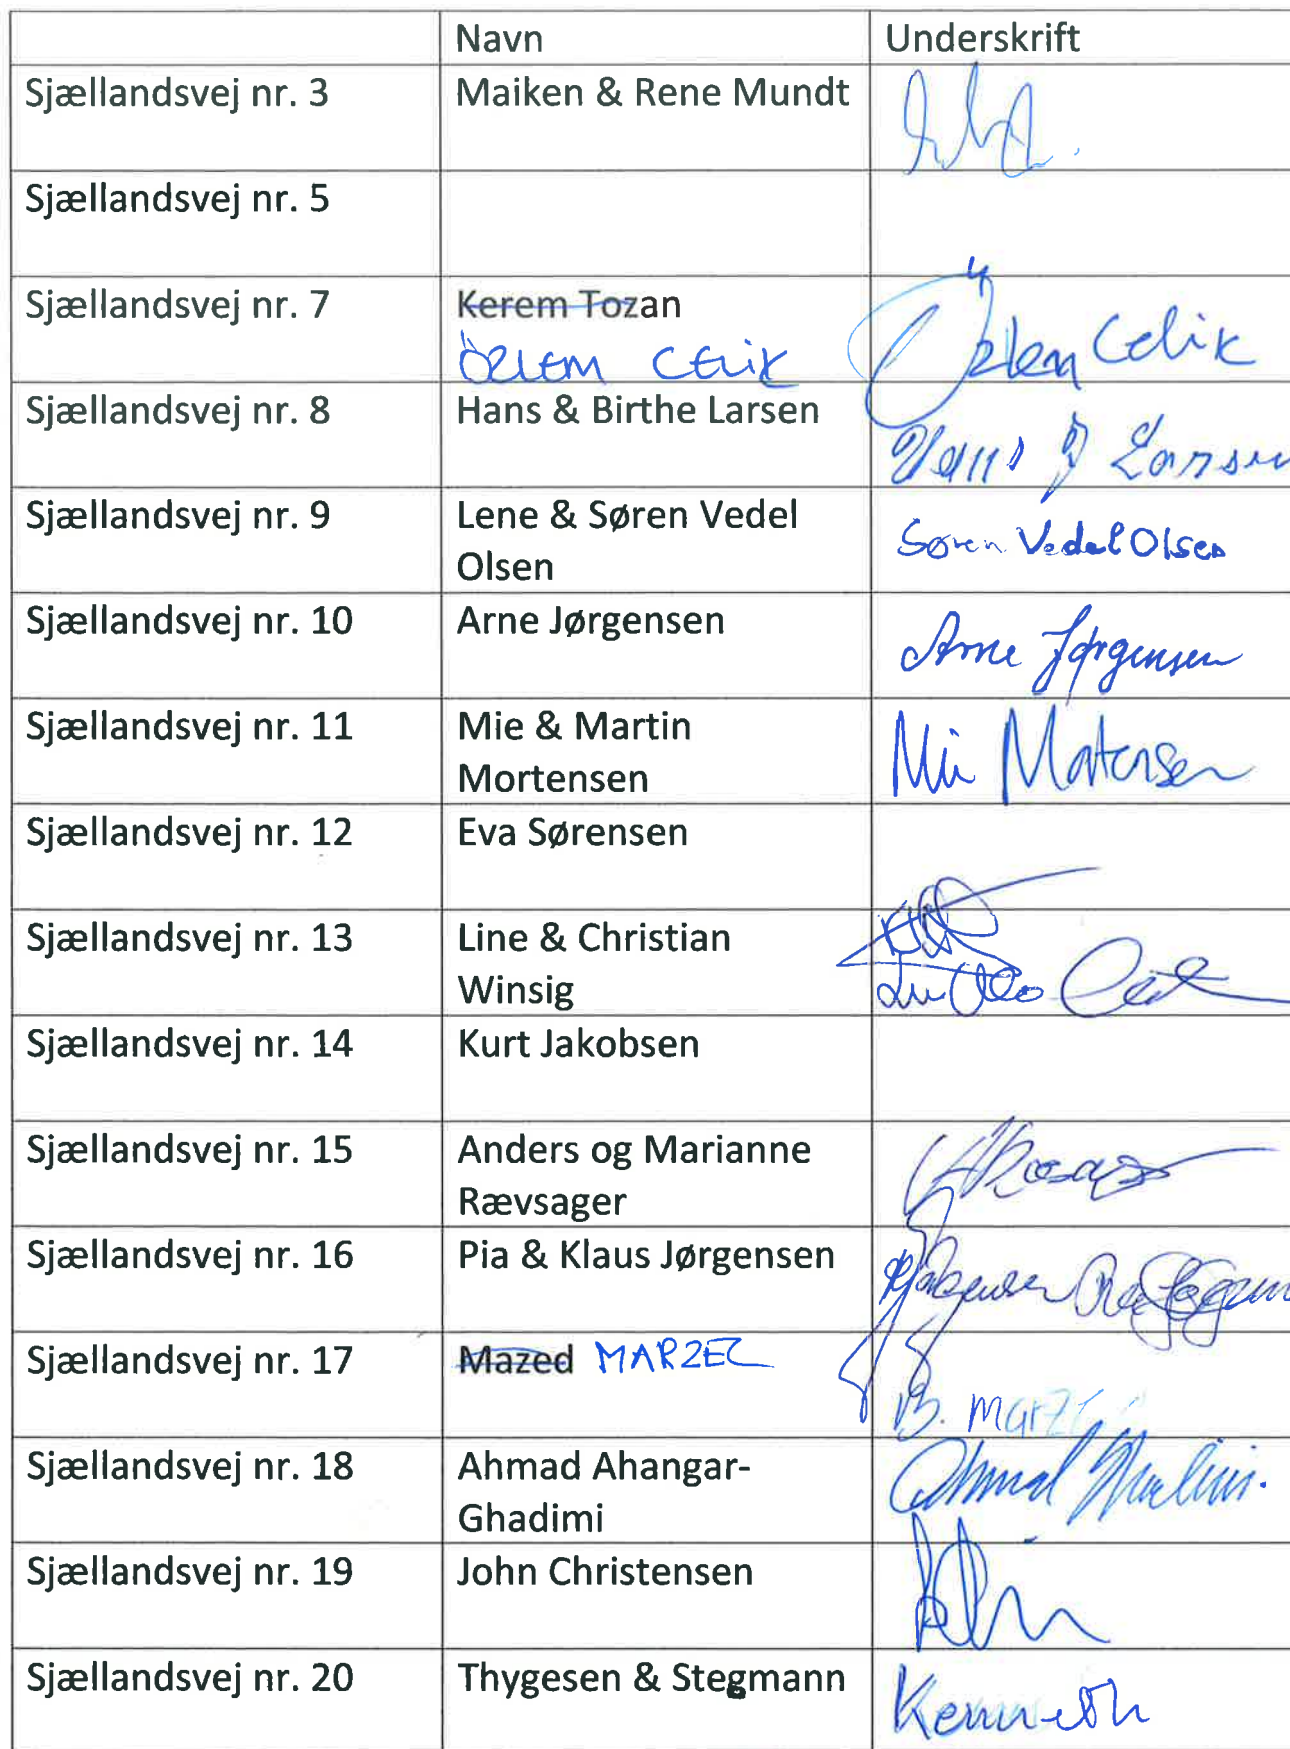 Navn Underskrift
Sjællandsvej nr. 3 Maiken & Rene Mundt
Sjællandsvej nr. 5
Sjællandsvej nr. 7 Kerem Tozan
ÖZLEM CELIK Özlem Celik
Sjællandsvej nr. 8 Hans & Birthe Larsen
Hans J Larsen
Sjællandsvej nr. 9 Lene & Søren Vedel
Olsen Søren Vedel Olsen
Sjællandsvej nr. 10 Arne Jørgensen
Arne Jørgensen
Sjællandsvej nr. 11 Mie & Martin
Mortensen Mie Mortensen
Sjællandsvej nr. 12 Eva Sørensen
Sjællandsvej nr. 13 Line & Christian
Winsig
Sjællandsvej nr. 14 Kurt Jakobsen
Sjællandsvej nr. 15 Anders og Marianne
Rævsager
Sjællandsvej nr. 16 Pia & Klaus Jørgensen
Sjællandsvej nr. 17 Mazed MARZEC
B.
Sjællandsvej nr. 18 Ahmad Ahangar-
Ghadimi Ahmad
Sjællandsvej nr. 19 John Christensen
Sjællandsvej nr. 20 Thygesen & Stegmann
Kenneth